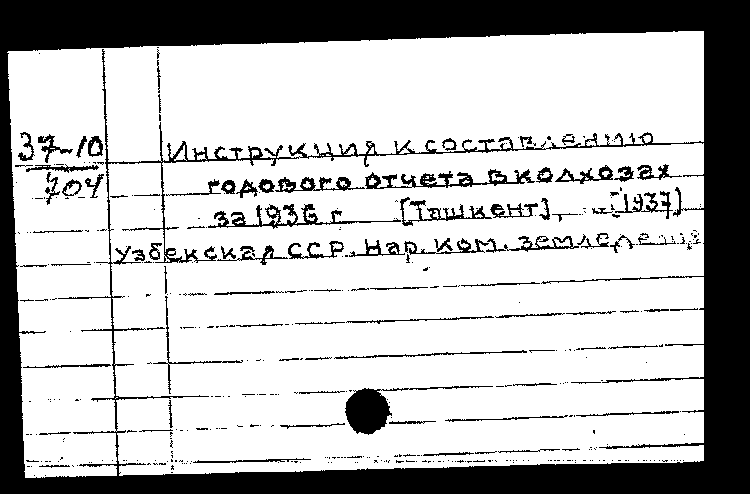 37-10
704
Инструкция к составлению
годового отчета в колхозах
за 1936 г. [Ташкент], [1937]
Узбекская ССР. Нар. ком. земледелия